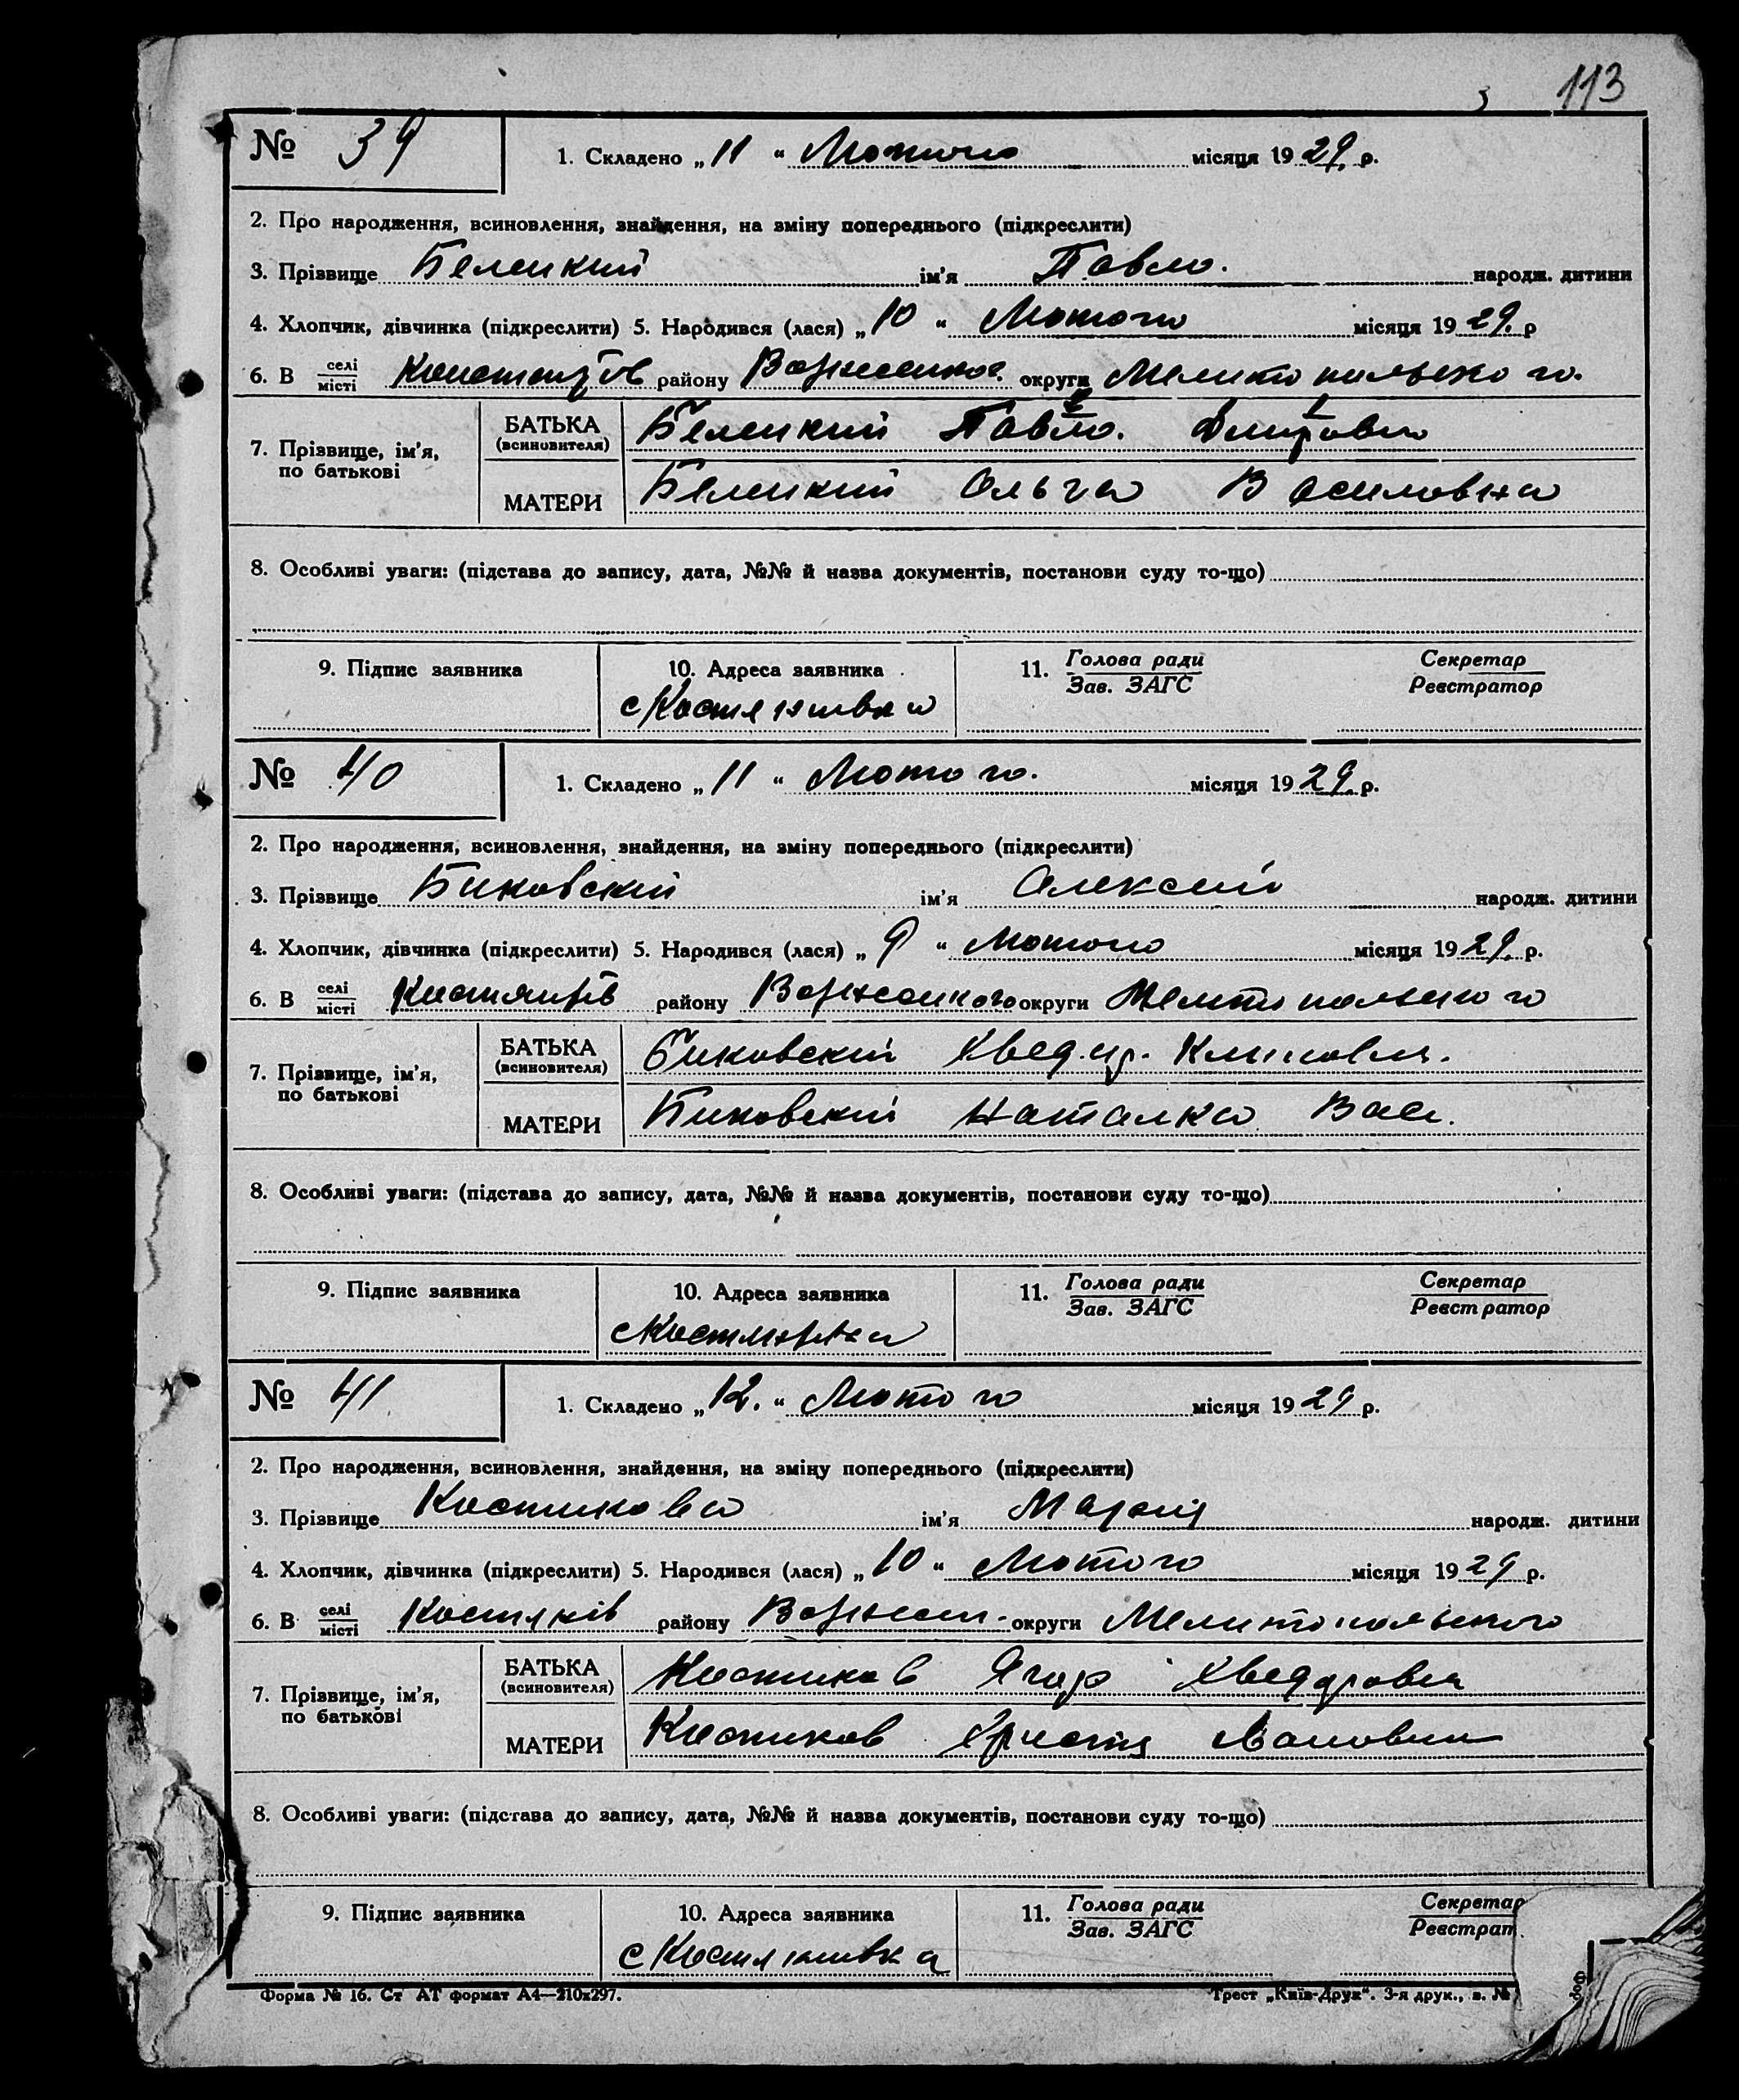 113
№ 39
1. Складено „11“ Лютого місяця 1929 р.
2. Про народження, всиновлення, знайдення, на зміну попереднього (підкреслити)
3. Прізвище Белецкий ім'я Павло. народж. дитини
4. Хлопчик, дівчинка (підкреслити) 5. Народився (лася) „10“ Лютого місяця 1929. р
6. В селі місті району округи Мелитопольского.
7. Прізвище, ім'я, по батькові
БАТЬКА (всиновителя) Белецкий Павло.
МАТЕРИ Белецкий Ольга Василовна
8. Особливі уваги: (підстава до запису, дата, №№ й назва документів, постанови суду то-що)
9. Підпис заявника 10. Адреса заявника 11. Голова ради Секретар
Зав. ЗАГС Реєстратор
с
№ 40
1. Складено „11“ Лютого. місяця 1929. р.
2. Про народження, всиновлення, знайдення, на зміну попереднього (підкреслити)
3. Прізвище Биковский ім'я Олексей народж. дитини
4. Хлопчик, дівчинка (підкреслити) 5. Народився (лася) „9“ Лютого місяця 1929. р.
6. В селі місті району округи Мелитопольского
7. Прізвище, ім'я, по батькові
БАТЬКА (всиновителя) Биковский
МАТЕРИ Биковский Наталка Вас.
8. Особливі уваги: (підстава до запису, дата, №№ й назва документів, постанови суду то-що)
9. Підпис заявника 10. Адреса заявника 11. Голова ради Секретар
Зав. ЗАГС Реєстратор
с
№ 41
1. Складено „12.“ Лютого місяця 1929 р.
2. Про народження, всиновлення, знайдення, на зміну попереднього (підкреслити)
3. Прізвище Костикова ім'я Мария народж. дитини
4. Хлопчик, дівчинка (підкреслити) 5. Народився (лася) „10“ Лютого місяця 1929 р.
6. В селі місті району округи Мелитопольского
7. Прізвище, ім'я, по батькові
БАТЬКА (всиновителя) Костиков Ягор Хведорович
МАТЕРИ Костиков Христя
8. Особливі уваги: (підстава до запису, дата, №№ й назва документів, постанови суду то-що)
9. Підпис заявника 10. Адреса заявника 11. Голова ради Секретар
Зав. ЗАГС Реєстрат
с
Форма № 16. Ст АТ формат А4—210х297. Трест „Київ-Друк“. 3-я друк., з. №